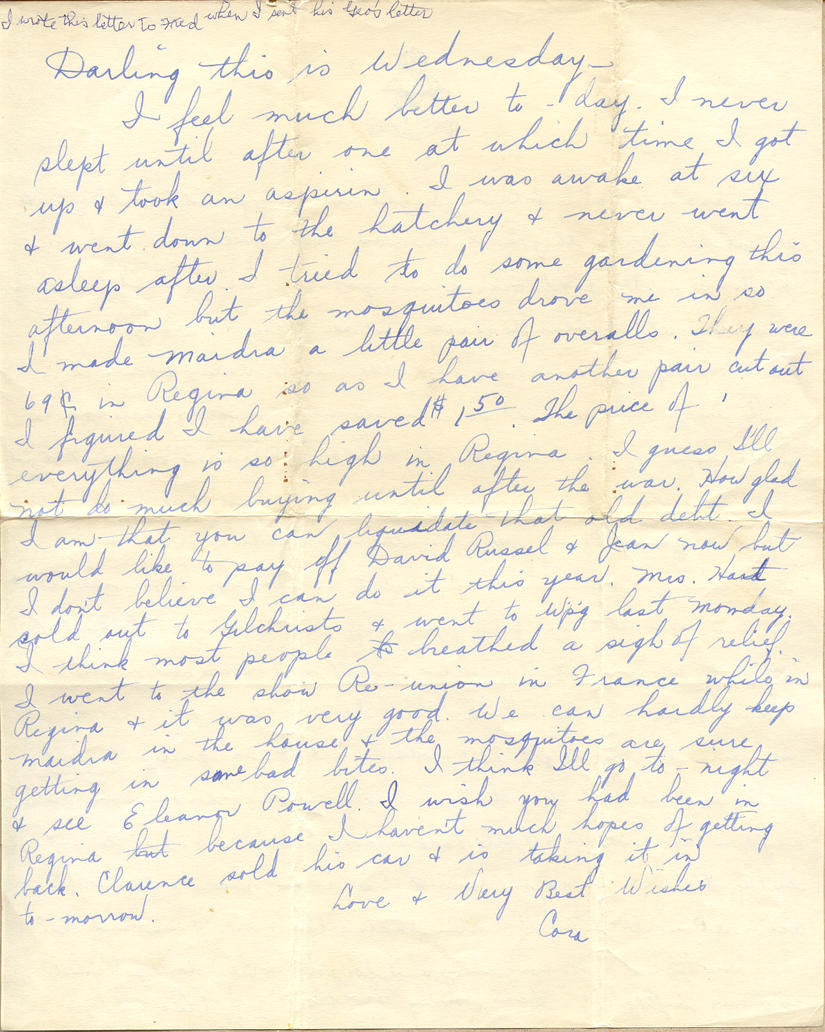 I wrote this letter to Fred when I sent his Geo's letter
Darling this is Wednesday-
I feel much better to-day. I never
slept until after one at which time I got
up & took an aspirin. I was awake at six
& went down to the hatchery & never went
asleep after. I tried to do some gardening this
afternoon but the mosquitoes drove me in so
I made Maidra a little pair of overalls. They were
69¢ in Regina so as I have another pair cut out
I figured I have saved $1.50. The price of
everything is so high in Regina. I guess I'll
not do much buying until after the war. How glad
I am that you can liquadate that old debt. I
would like to pay off David Russel & Jean now but
I don't believe I can do it this year. Mrs.
sold out to Gilchrists & went to Wp'g last Monday.
I think most people breathed a sigh of relief.
I went to the show Re-union in France while in
Regina & it was very good. We can hardly keep
Maidra in the house & the mosquitoes are sure
getting in some bad bites. I think I'll go to-night
& see Eleanor Powell. I wish you had been in
Regina but because I haven't much hopes of getting
back. Clarence sold his car & is taking it in
to-morrow.
Love & Very Best Wishes
Cora